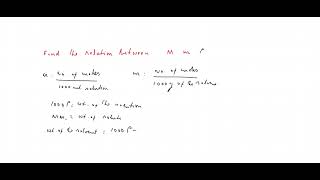 Find the relation between M m ρ
M = No of moles / 1000 ml solution m = No of moles / 1000 g of the solvent
1000 ρ = wt. of the solution
MM₂ = wt. of solute
wt. of the solvent = 1000 ρ -